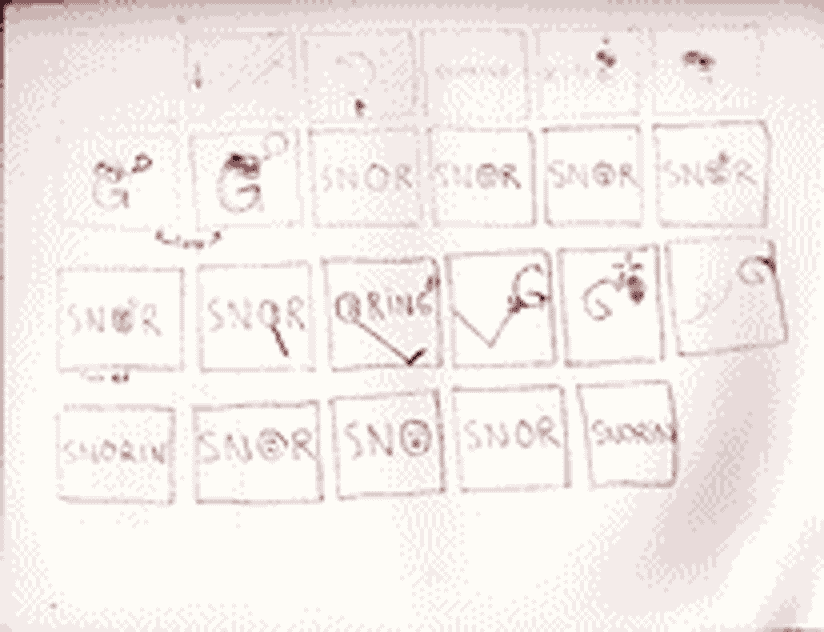 G G SNOR SNOR SNOR SNOR
SNOR SNOR ORING G G G
SNORIN SNOR SNO SNOR SNORIN